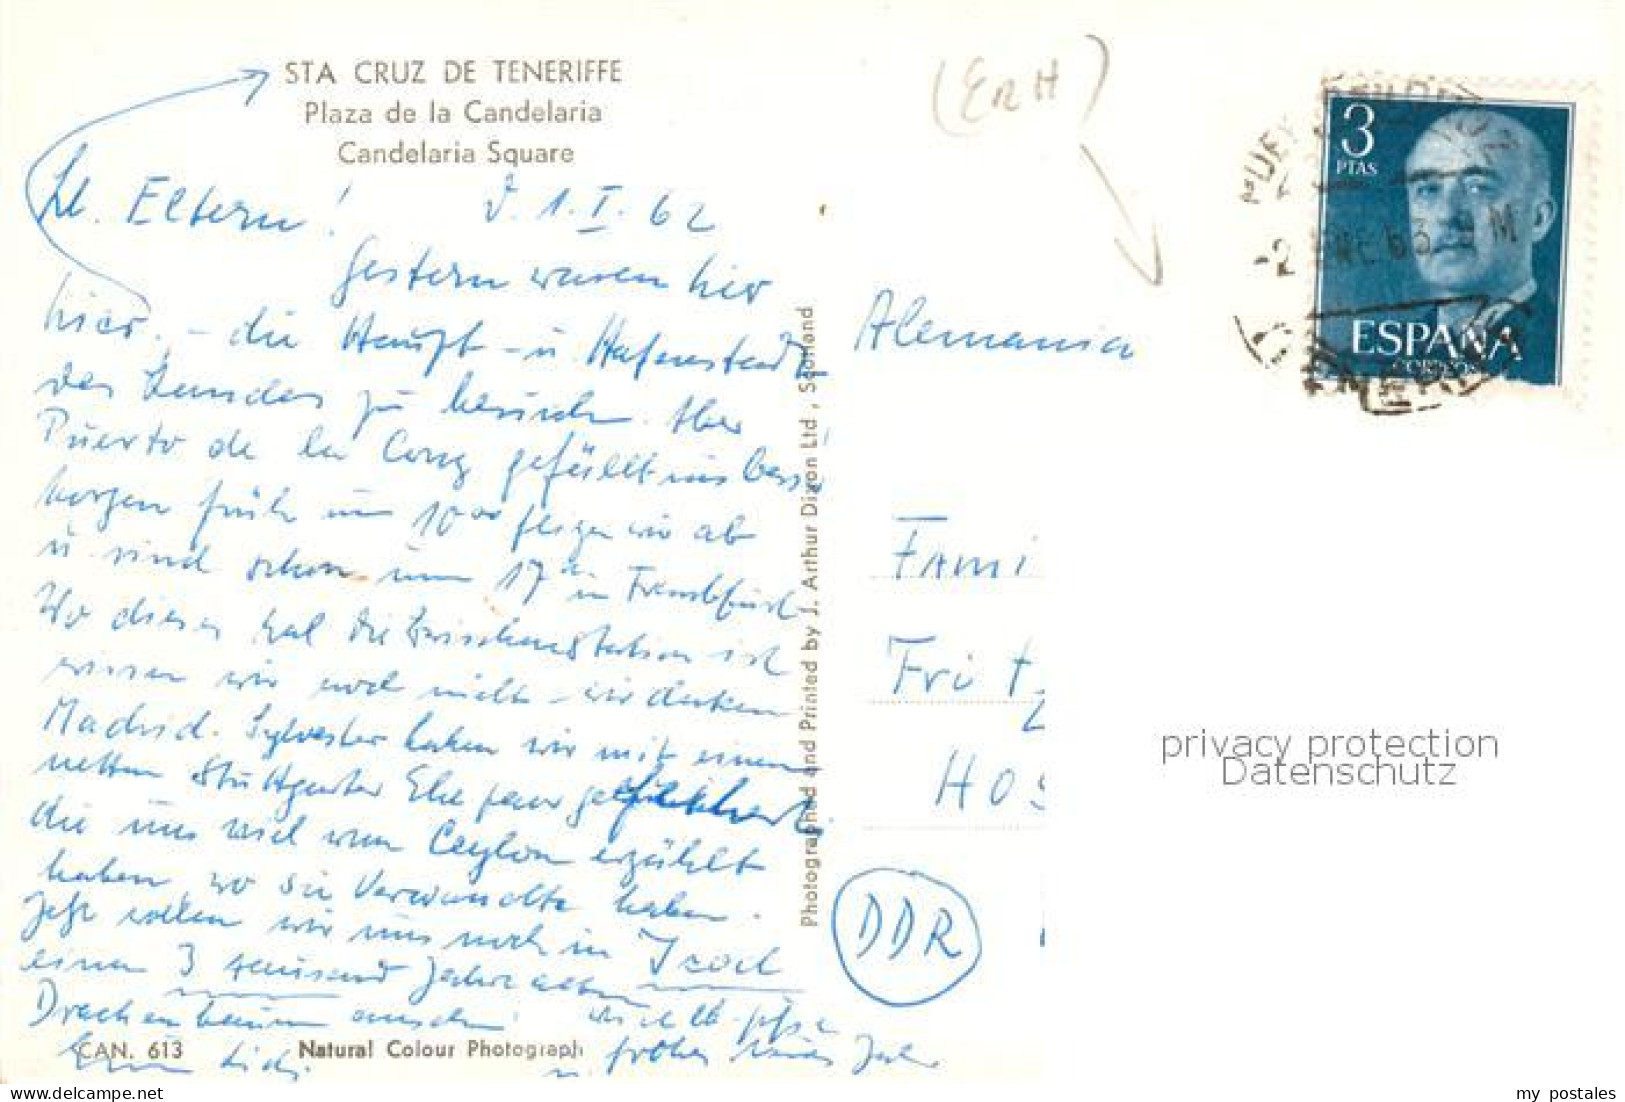 STA CRUZ DE TENERIFFE
Plaza de la Candelaria
Candelaria Square
(ERH)
Lb. Eltern! 1. I. 62
Gestern waren wir
hier. – die Haupt- u. Hafenstadt
des Landes zu besuchen. Aber
Puerto de la Cruz gefällt uns
Morgen früh um 10 fliegen wir ab
u. sind schon um 17 in Frankfurt
Wo dieses Mal die Zwischenstation ist
wissen wir noch nicht – wir denken
Madrid. Sylvester haben wir mit einem
netten Stuttgarter Ehepaar gefeiert
die uns viel von Ceylon erzählt
haben, wo sie Verwandte haben.
Jetzt wollen wir uns noch in Icod
einen 3 tausend Jahre alten
Drachenbaum ansehen.
frohes neues Jahr
CAN. 613
Natural Colour Photograph
Photographed and Printed by J. Arthur Dixon Ltd., Scotland
3
PTAS
ESPAÑA
CORREOS
Alemania
Fami
Frit
HOS
DDR
privacy protection
Datenschutz
my postales